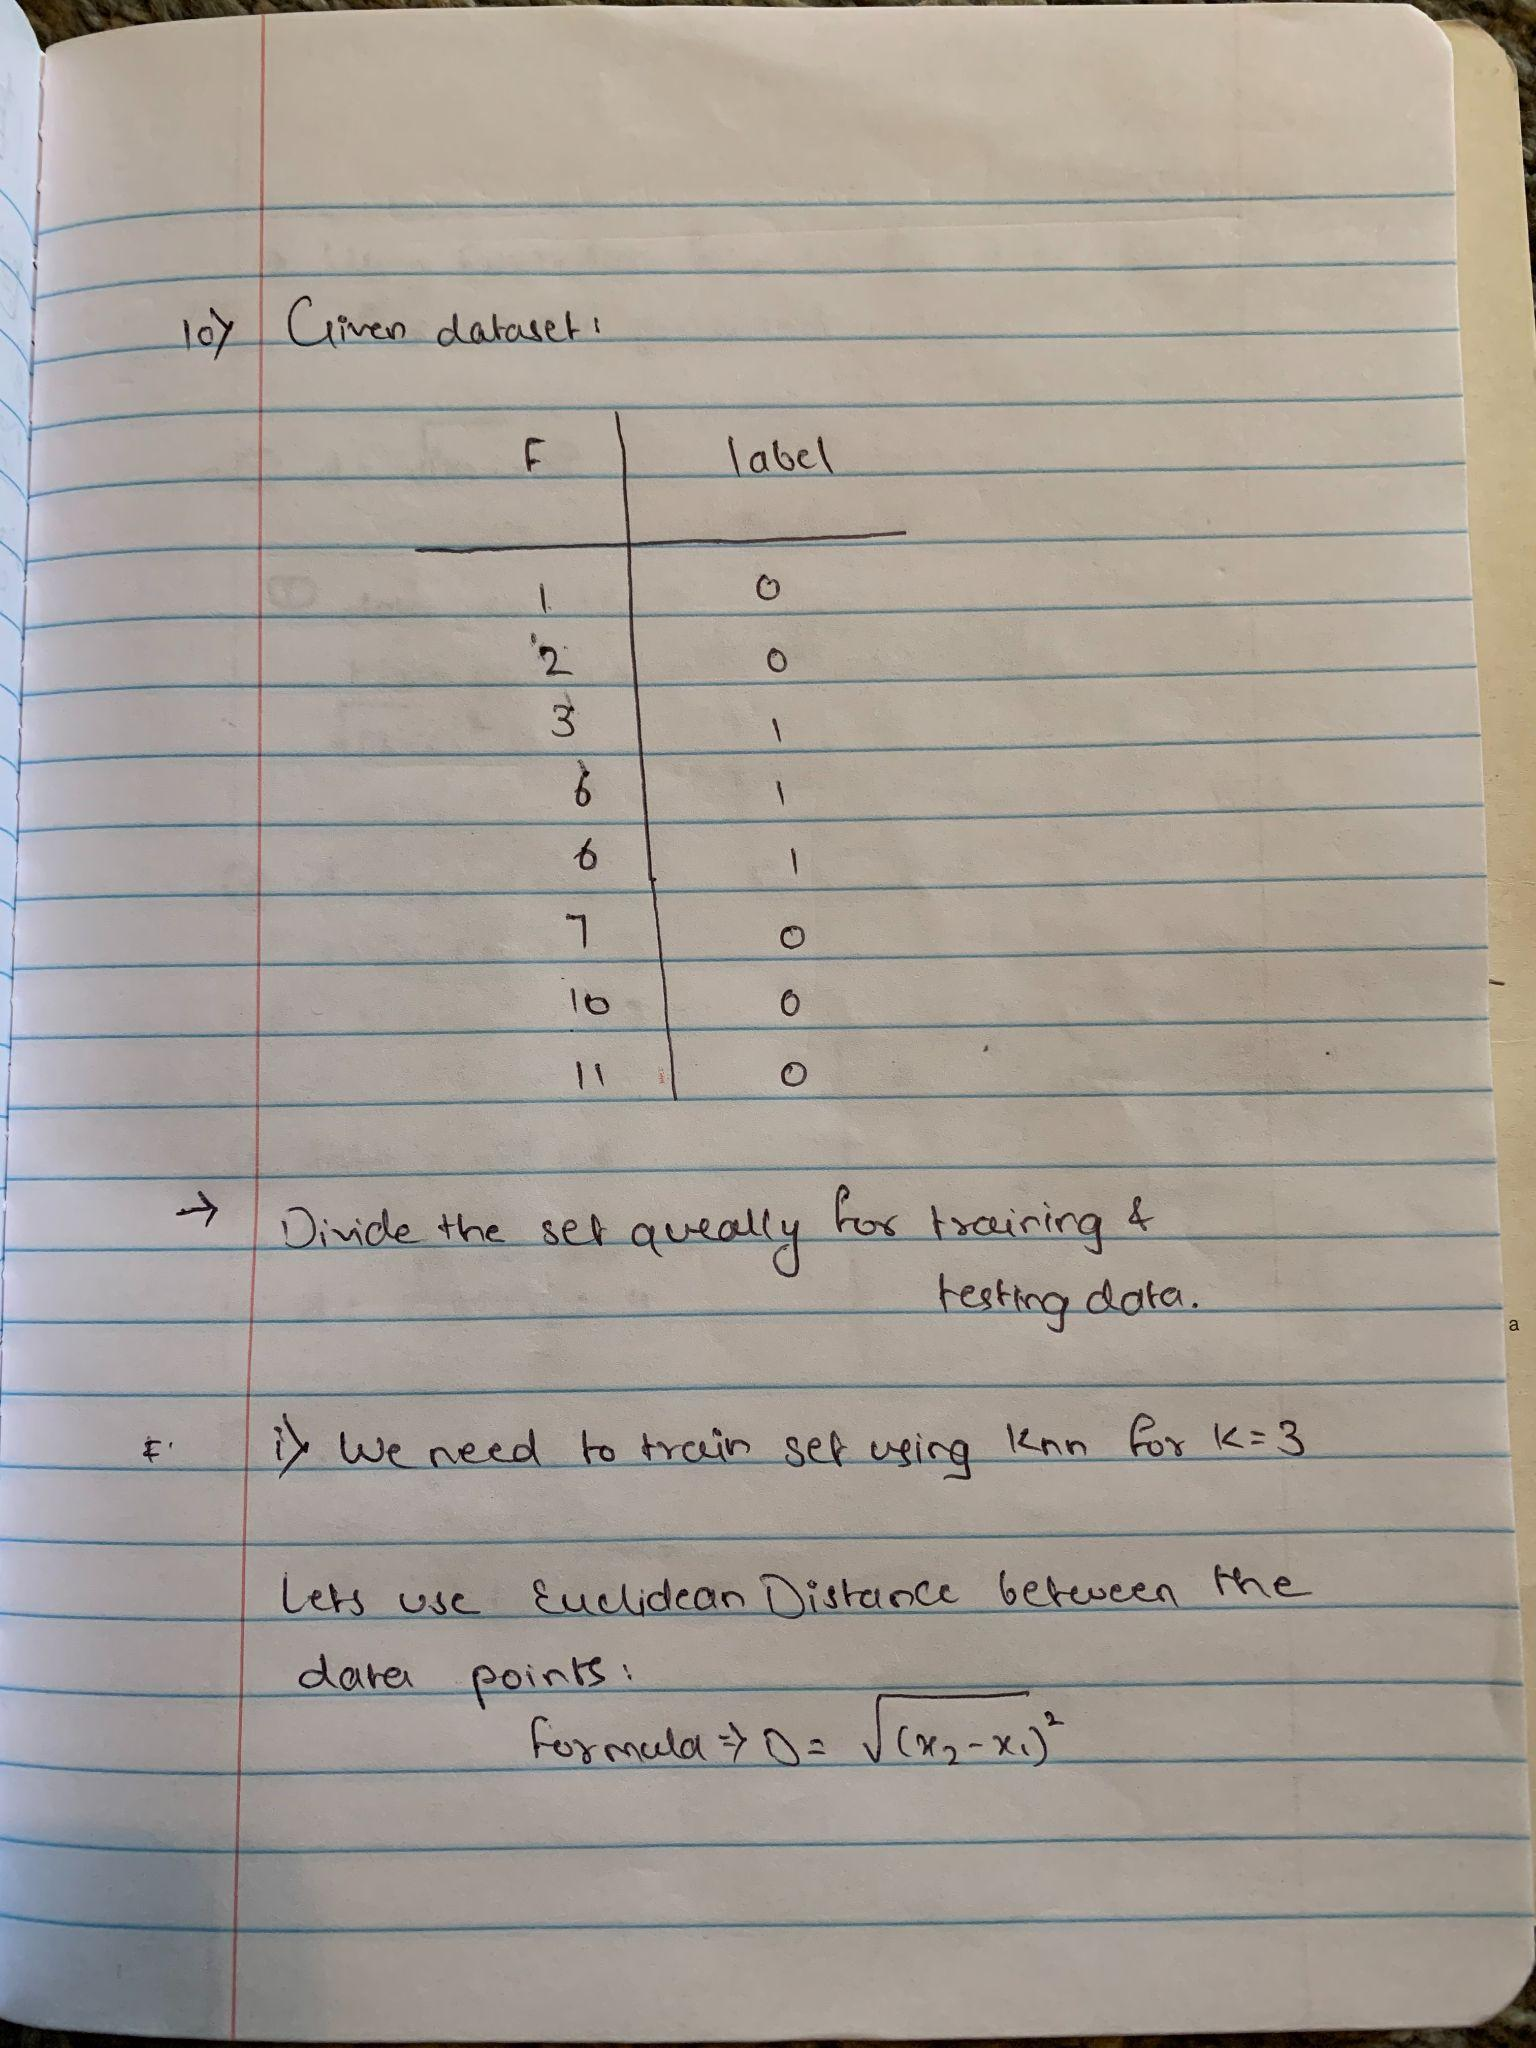 10) Given dataset:
F label
1 0
2 0
3 1
6 1
6 1
7 0
10 0
11 0
→ Divide the set queally for training &
testing data.
i) We need to train set using Knn for K=3
Lets use Euclidean Distance between the
data points:
formula ⇒ D = √(x₂-x₁)²
a